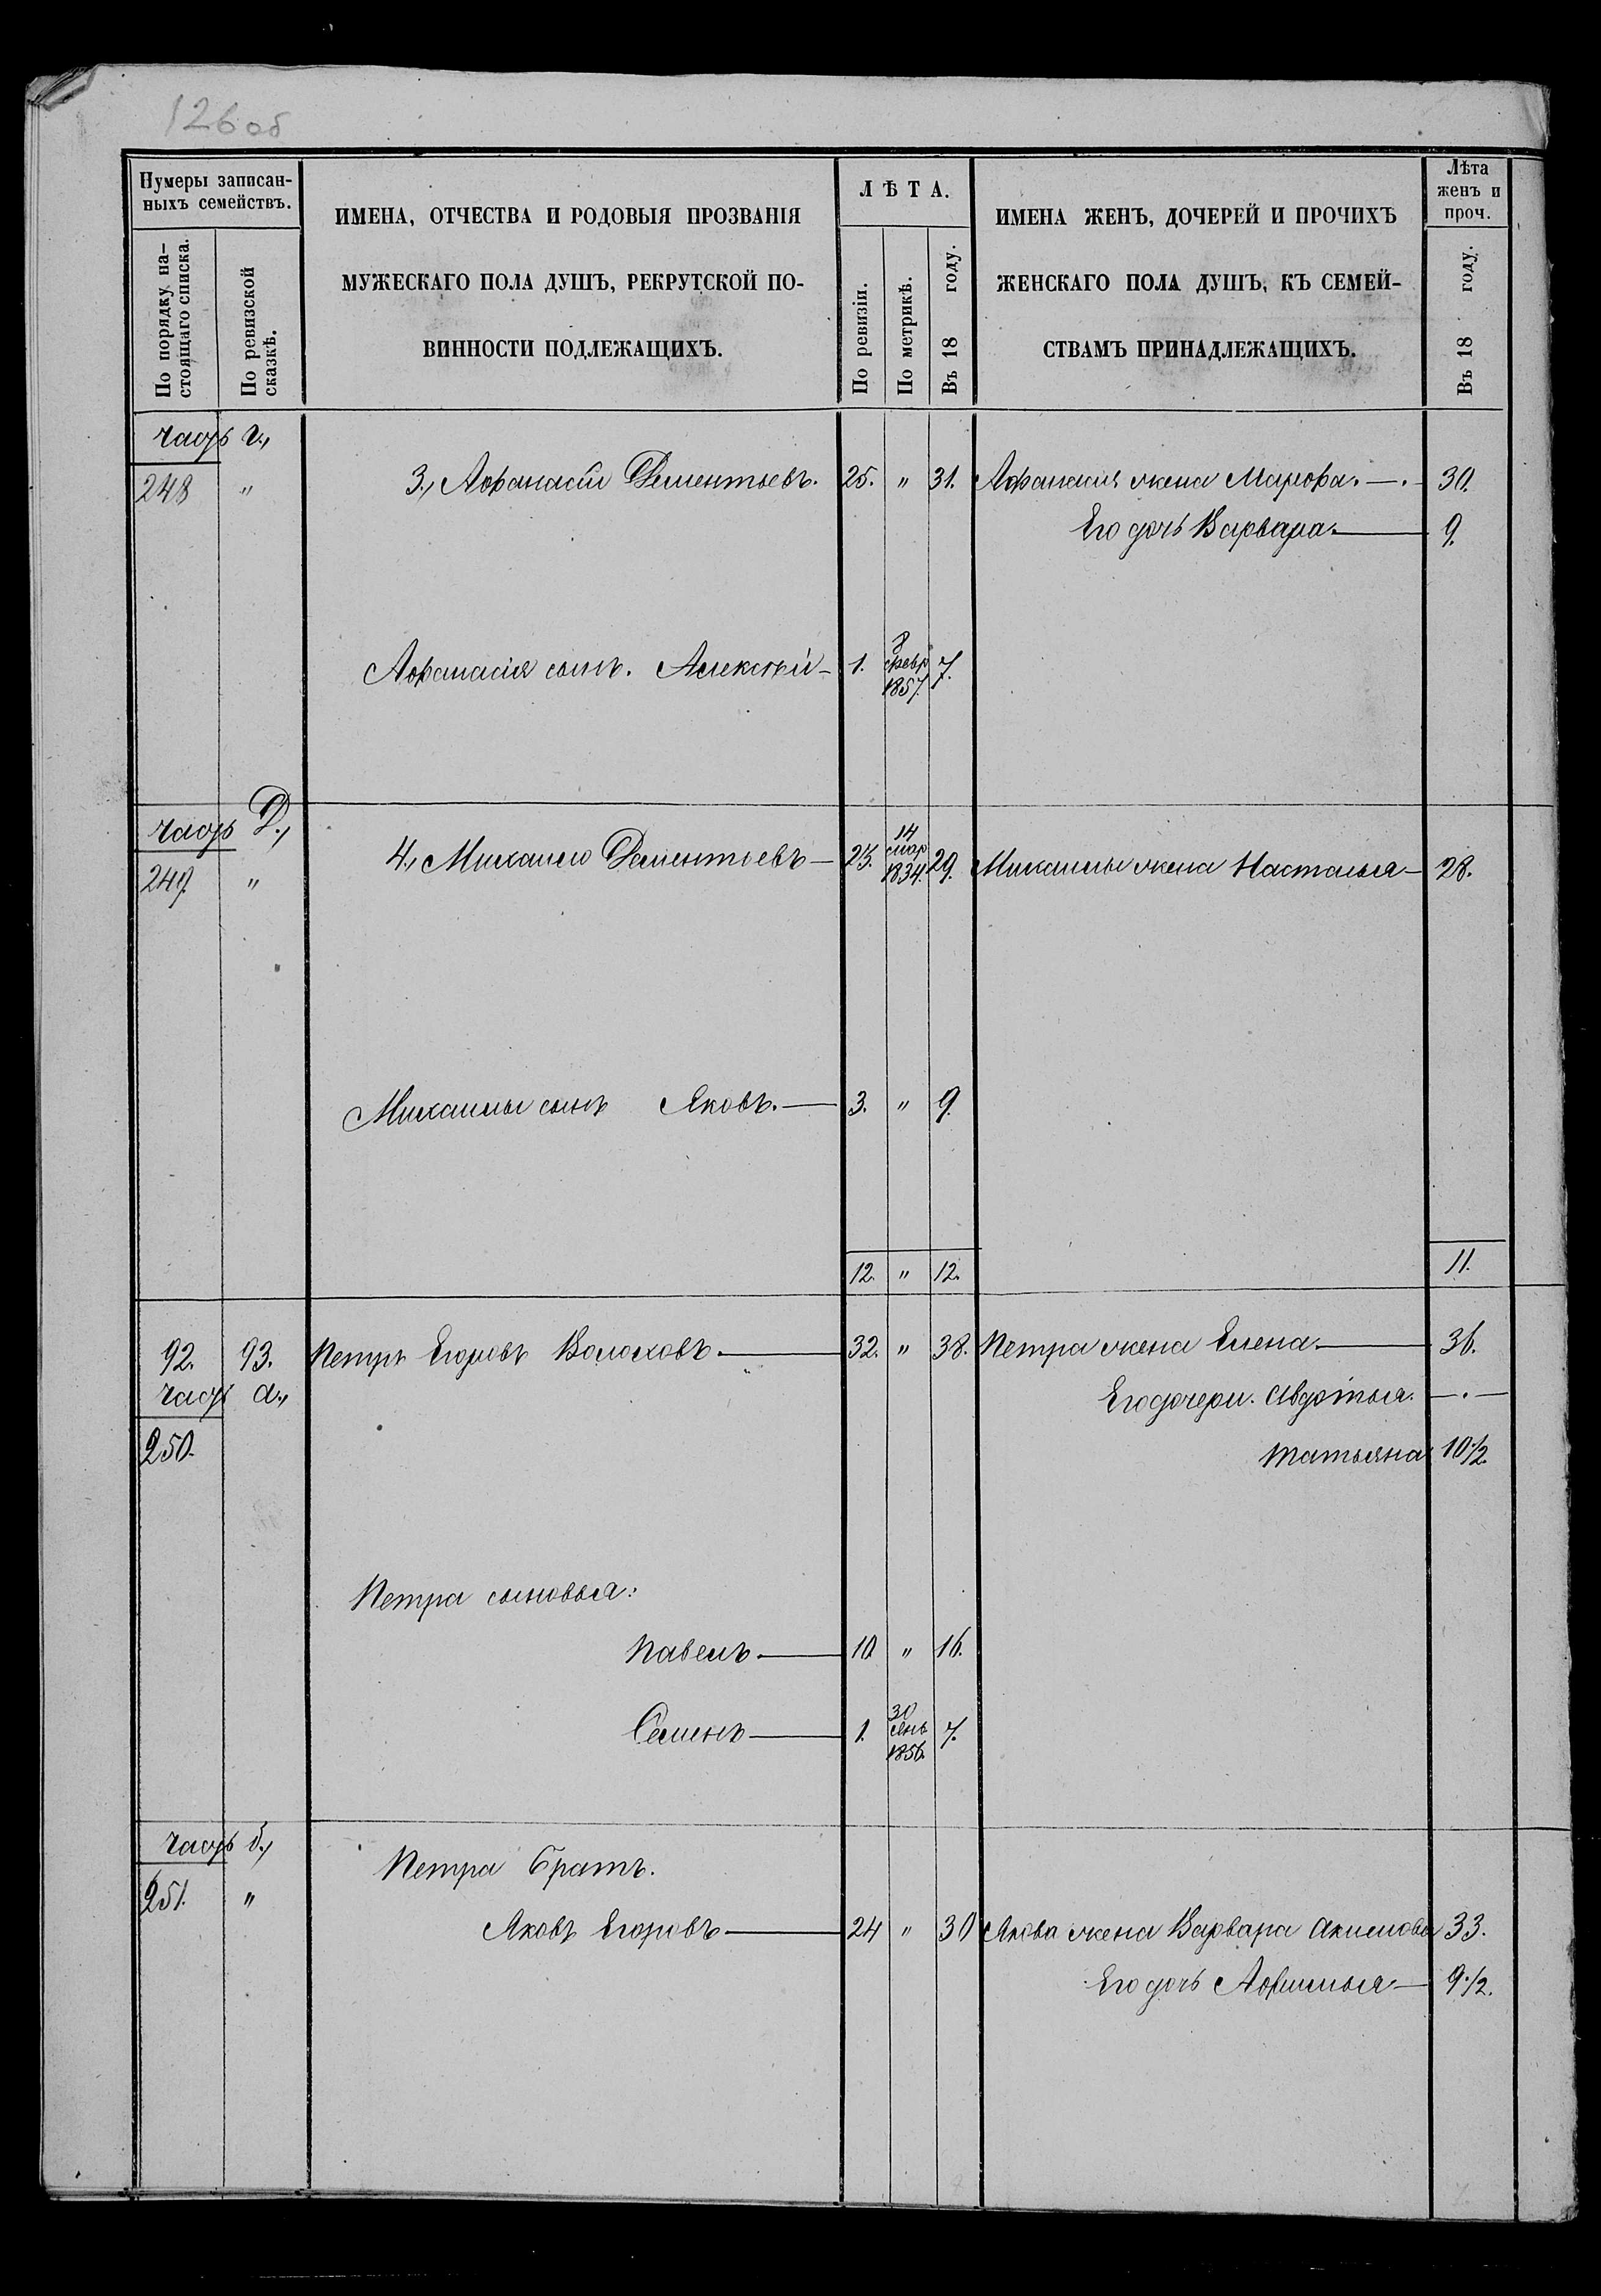 126 об
Нумеры записан-
ныхъ семействъ.
По порядку на-
стоящаго списка.
По ревизской
сказкѣ.
ИМЕНА, ОТЧЕСТВА И РОДОВЫЯ ПРОЗВАНІЯ
МУЖЕСКАГО ПОЛА ДУШЪ, РЕКРУТСКОЙ ПО-
ВИННОСТИ ПОДЛЕЖАЩИХЪ.
ЛѢТА.
По ревизіи.
По метрикѣ.
Въ 18 году.
ИМЕНА ЖЕНЪ, ДОЧЕРЕЙ И ПРОЧИХЪ
ЖЕНСКАГО ПОЛА ДУШЪ, КЪ СЕМЕЙ-
СТВАМЪ ПРИНАДЛЕЖАЩИХЪ.
Лѣта
женъ и
проч.
Въ 18 году.
часть г.,
248 " 3., Афанасій Дементьевъ. 25. " 31. Афанасія жена Марфа. —. 30.
Его дочь Варвара. — 9.
Афанасія сынъ. Алексѣй — 1. 8 февр 1857. 7.
часть Д.,
249 " 4., Михайло Дементьевъ — 23. 14 мар 1834. 29. Михайлы жена Настасья — 28.
Михайлы сынъ Яковъ. — 3. " 9.
12. " 12. 11.
92. 93. Петръ Егоровъ Волоховъ. — 32. " 38. Петра жена Елена. — 36.
часть а., Его дочери. Авдотья. — . —
250. Татьяна 10½.
Петра сыновья:
Павелъ. — 10 " 16.
Семенъ — 1. 30 янв 1856. 7.
часть б., Петра братъ.
251. "
Яковъ Егоровъ — 24 " 30 Якова жена Варвара Акимова 33.
Его дочь Афимья — 9½.